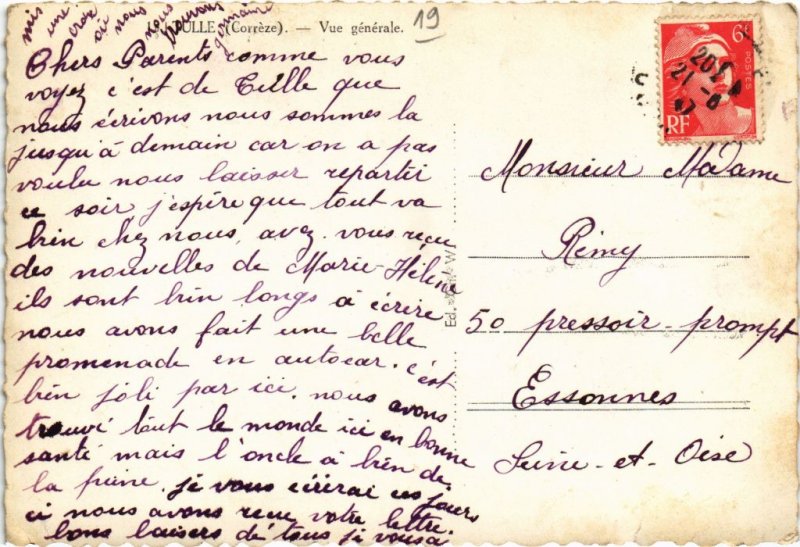 TULLE (Corrèze). — Vue générale.
19
Chers Parents comme vous
voyez c'est de Tulle que
nous écrivons nous sommes la
jusqu'à demain car on a pas
voulu nous laisser repartir
ce soir j'espère que tout va
bien chez nous, avez-vous reçu
des nouvelles de Marie-Hélène
ils sont bien longs à écrire
nous avons fait une belle
promenade en autocar. c'est
bien joli par ici. nous avons
trouvé tout le monde ici en bonne
santé mais l'oncle à bien de
la peine. je vous écrirai ces jours
ci nous avons reçu votre lettre.
bons baisers de tous je vous ai
mis
une
croix
où nous
nous
trouvons
germaine
6F
POSTES
RF
Ed.
Monsieur Madame
Rémy
50 pressoir-prompt
Essonnes
Seine-et-Oise